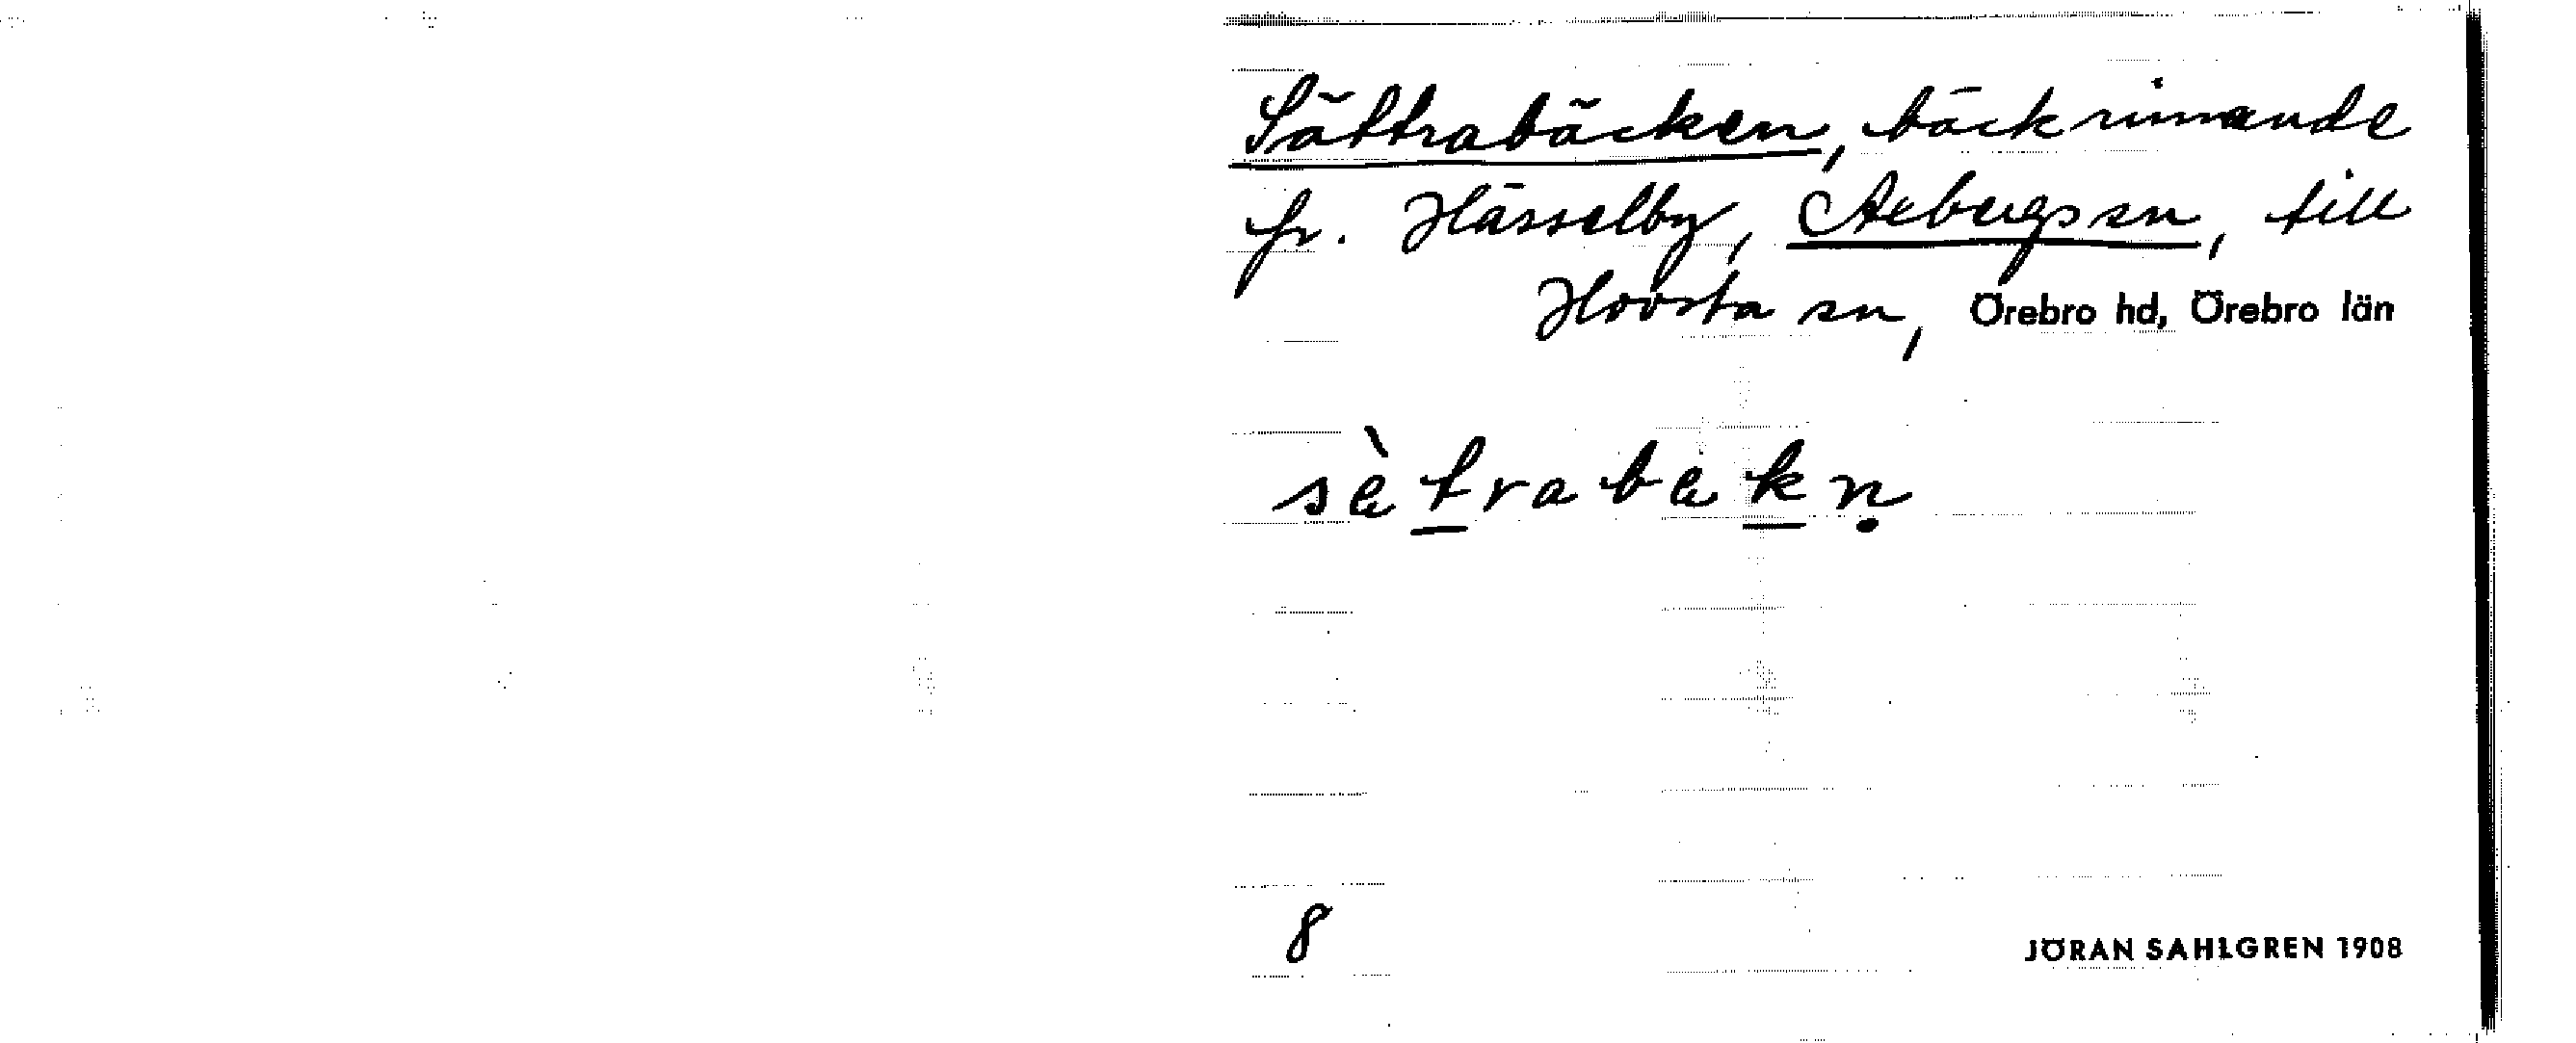 Sättrabäcken, bäck rinnande
fr. Hässelby, Axbergs sn, till
Hovsta sn, Örebro hd, Örebro län
sä̀trabäkn̥
8
JÖRAN SAHLGREN 1908